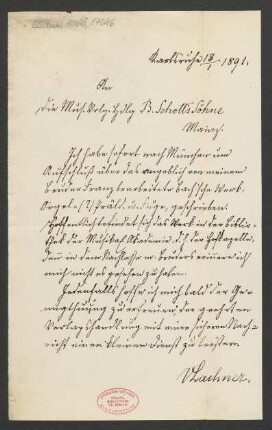 Karlsruhe 18/ 1891.
An
die Mus. Verl. Hdlg B. Schott's Söhne
Mainz.
Ich habe sofort nach München um
Aufschluß über das angeblich von meinem
Bruder Franz bearbeitete Bach'sche Werk
Orgel (?) Präld. u. Fuge, geschrieben.
Hoffentlich befindet sich das Werk in der Biblio-
thek der Musikal. Akademie d. h. der Hofkapelle,
denn in dem Nachlasse m. Bruders erinnere ich
mich nicht es gesehen zu haben.
Jedenfalls hoffe ich mich bald der Ge-
nugthuung zu erfreuen der geehrten
Verlagshandlung mit einer sicheren Nach-
richt einen kleinen Dienst zu leisten.
VLachner.